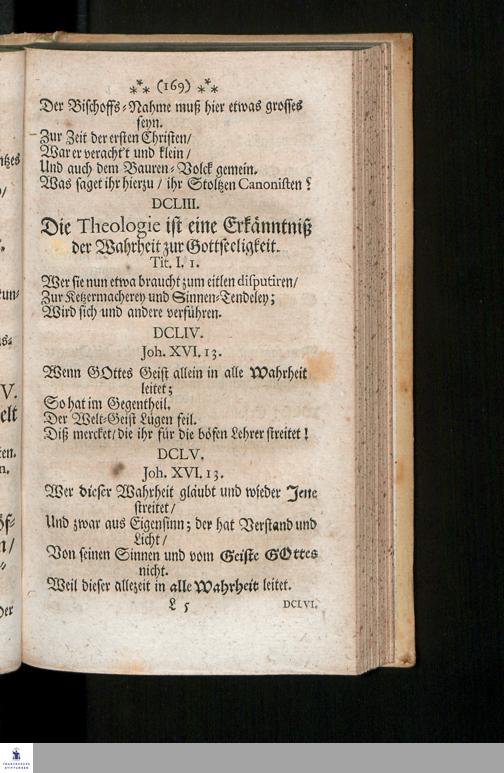 ⁂ (169) ⁂
Der Bischoffs-Nahme muß hier etwas grosses
seyn.
Zur Zeit der ersten Christen/
War er veracht't und klein/
Und auch dem Bauren-Volck gemein.
Was saget ihr hierzu / ihr Stoltzen Canonisten?
DCLIII.
Die Theologie ist eine Erkänntniß
der Wahrheit zur Gottseeligkeit.
Tit. I. 1.
Wer sie nun etwa braucht zum eitlen disputiren/
Zur Ketzermacherey und Sinnen-Tendeley;
Wird sich und andere verführen.
DCLIV.
Joh. XVI. 13.
Wenn GOttes Geist allein in alle Wahrheit
leitet;
So hat im Gegentheil.
Der Welt-Geist Lügen feil.
Diß mercket/ die ihr für die bösen Lehrer streitet!
DCLV.
Joh. XVI. 13.
Wer dieser Wahrheit gläubt und wieder Jene
streitet/
Und zwar aus Eigensinn; der hat Verstand und
Licht/
Von seinen Sinnen und vom Geiste GOttes
nicht.
Weil dieser allezeit in alle Wahrheit leitet.
L 5 DCLVI.
FRANCKESCHE
STIFTUNGEN